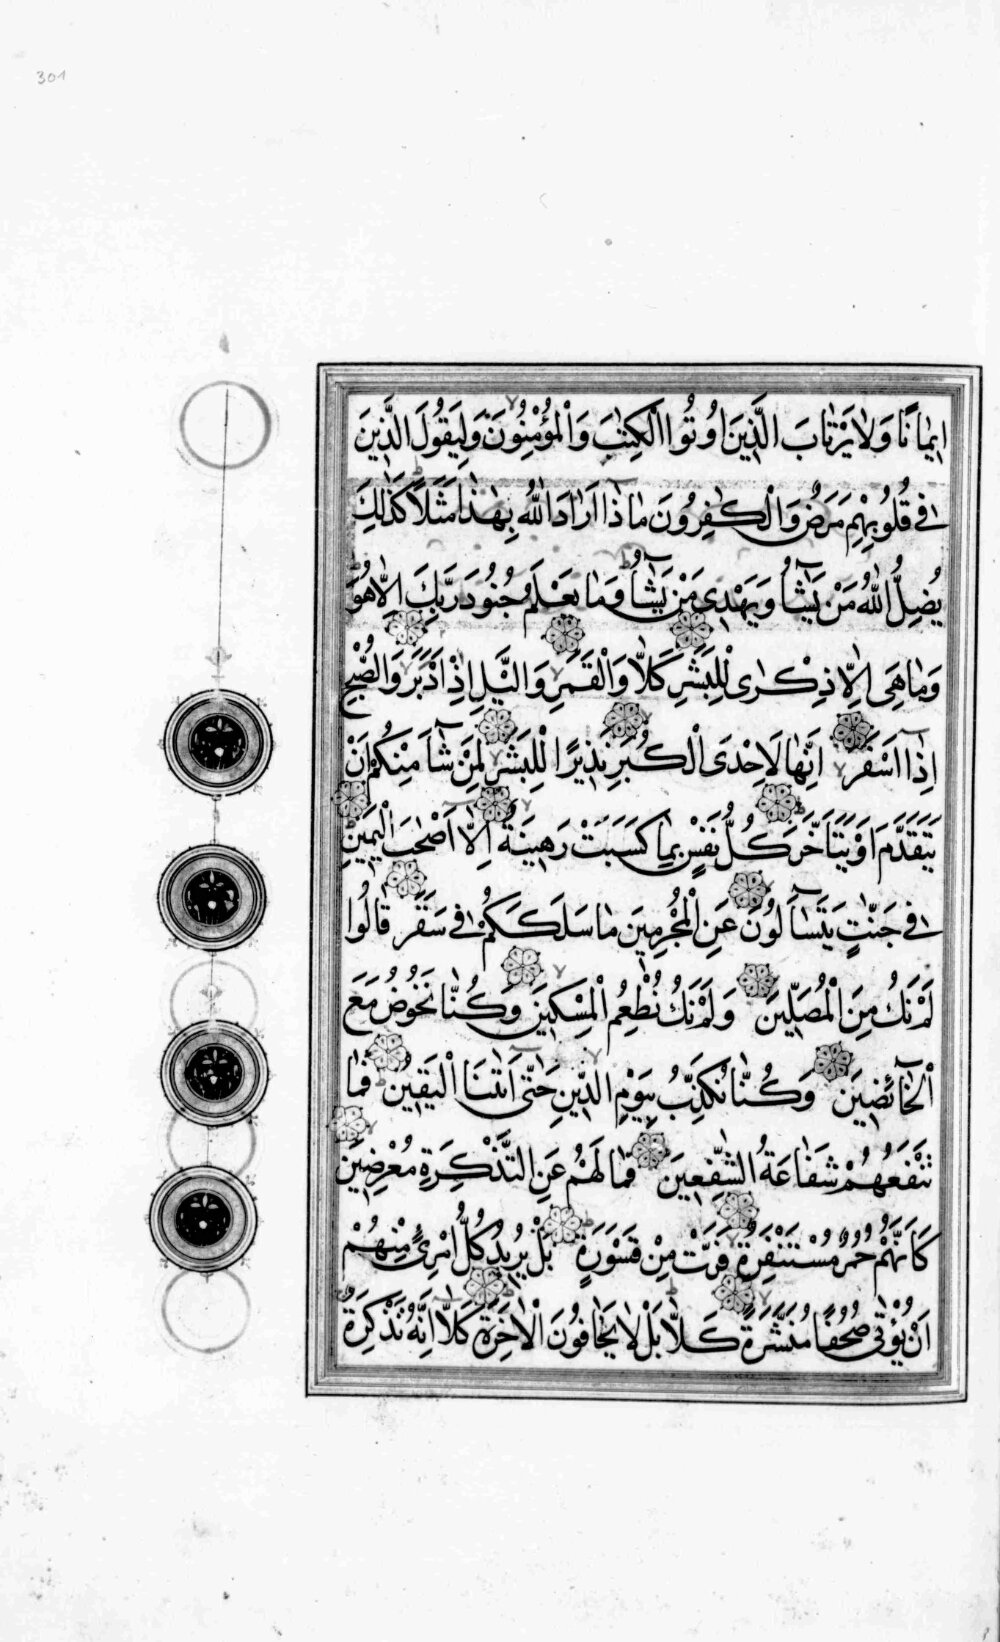 301
اِيمٰانًا وَلاٰ يَرْتٰابَ الَّذِينَ اُوتُوا الْكِتٰبَ وَالْمُؤْمِنُونَ وَلِيَقُولَ الَّذِينَ
فِى قُلُوبِهِمْ مَرَضٌ وَالْكٰفِرُونَ مٰاذٰٓا اَرٰادَ اللّٰهُ بِهٰذٰا مَثَلًا كَذٰلِكَ
يُضِلُّ اللّٰهُ مَنْ يَشٰٓاُ وَيَهْدِى مَنْ يَشٰٓاُ وَمٰا يَعْلَمُ جُنُودَ رَبِّكَ اِلّٰا هُوَ
وَمٰا هِىَ اِلّٰا ذِكْرٰى لِلْبَشَرِ كَلّٰا وَالْقَمَرِ وَالَّيْلِ اِذْ اَدْبَرَ وَالصُّبْحِ
اِذٰٓا اَسْفَرَ اِنَّهٰا لَاِحْدَى الْكُبَرِ نَذِيرًا لِلْبَشَرِ لِمَنْ شٰٓاَ مِنْكُمْ اَنْ
يَتَقَدَّمَ اَوْ يَتَاَخَّرَ كُلُّ نَفْسٍ بِمٰا كَسَبَتْ رَهِينَةٌ اِلّٰٓا اَصْحٰبَ الْيَمِينِ
فِى جَنّٰتٍ يَتَسٰٓاَلُونَ عَنِ الْمُجْرِمِينَ مٰا سَلَكَكُمْ فِى سَقَرَ قٰالُوا
لَمْ نَكُ مِنَ الْمُصَلِّينَ وَلَمْ نَكُ نُطْعِمُ الْمِسْكِينَ وَكُنّٰا نَخُوضُ مَعَ
الْخٰٓائِضِينَ وَكُنّٰا نُكَذِّبُ بِيَوْمِ الدِّينِ حَتّٰٓى اَتٰنَا الْيَقِينُ فَمٰا
تَنْفَعُهُمْ شَفٰاعَةُ الشّٰفِعِينَ فَمٰا لَهُمْ عَنِ التَّذْكِرَةِ مُعْرِضِينَ
كَاَنَّهُمْ حُمُرٌ مُسْتَنْفِرَةٌ فَرَّتْ مِنْ قَسْوَرَةٍ بَلْ يُرِيدُ كُلُّ امْرِئٍ مِنْهُمْ
اَنْ يُؤْتٰى صُحُفًا مُنَشَّرَةً كَلّٰا بَلْ لاٰ يَخٰافُونَ الْاٰخِرَةَ كَلّٰٓا اِنَّهُ تَذْكِرَةٌ